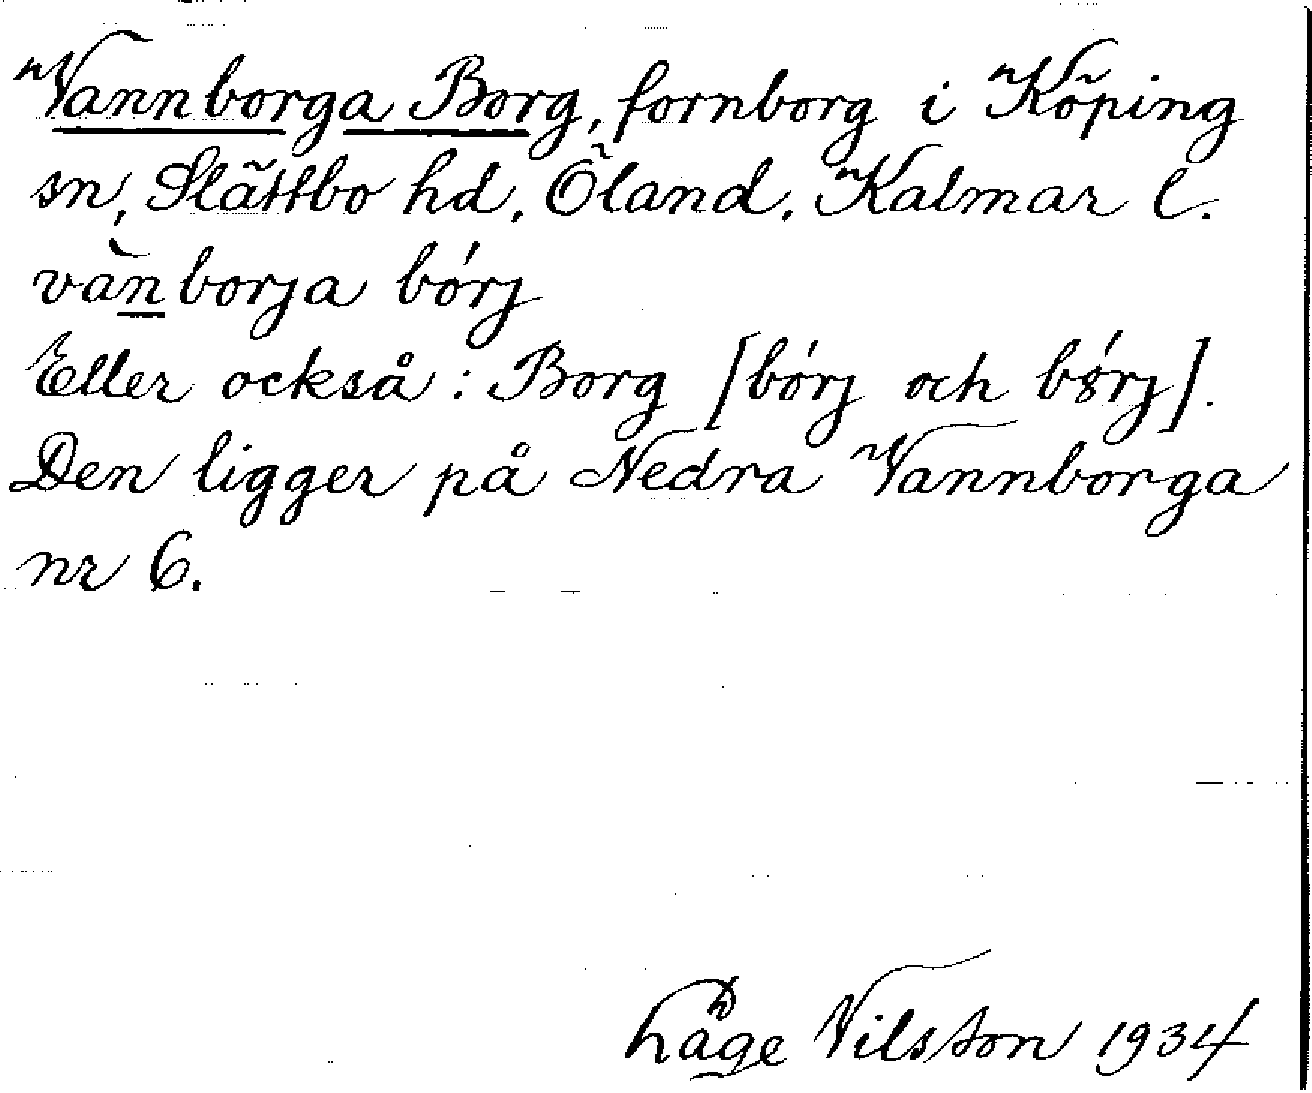 Vannborga Borg, fornborg i Köping
sn, Slättbo hd, Öland, Kalmar l.
vànborja bórj
Eller också: Borg [bórj och bǿrj].
Den ligger på Nedra Vannborga
nr 6.
Nilsson 1934